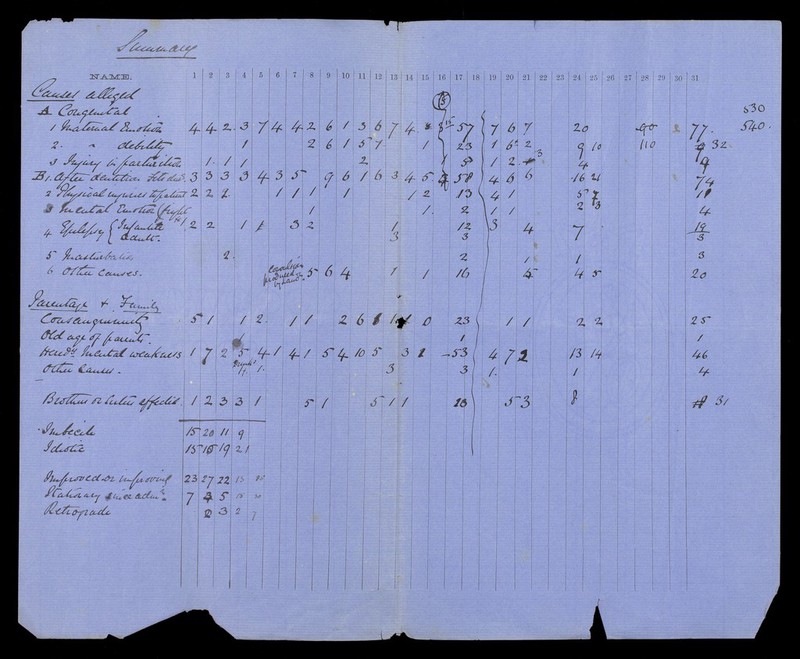 Summary
NAME. 1 2 3 4 5 6 7 8 9 10 11 12 13 14 15 16 17 18 19 20 21 22 23 24 25 26 27 28 29 30 31
Causes alleged
A Congenital 530
1 Maternal Emotion 4 4 2 3 7 4 4 2 6 1 3 6 7 4 57 7 6 7 20 90 77 540
2 " debility 1 2 6 1 5 7 1 23 1 6 2 9 10 110 9 32
3 Injury in parturition 1 1 1 2 1 5 1 2 3 4 9
B 1. After dentition 3 3 3 3 4 3 5 9 6 1 6 3 4 5 4 58 4 6 6 16 21 74
2 Physical injuries to patient 2 2 2 1 1 1 1 1 2 13 4 1 5 7 11
3 Mental Emotion (fright &c) 1 1 2 1 1 2 3 4
4 Epilepsy { Infantile 2 2 1 1 3 2 1 12 3 4 7 19
Adult 3 3 3
5 Masturbation 2 2 1 1 3
6 Other causes. 5 6 4 1 1 16 5 4 5 20
Parentage & Family
Consanguinity 5 1 1 2 1 1 2 6 1 1 0 23 1 1 2 2 25
Old age of parents. 1 1
Heredy Mental weakness 1 7 2 5 4 1 4 1 5 4 10 5 3 1 53 4 7 2 13 14 46
Other Causes. 1. 3 3 1. 1 4
Brothers or Sisters affected 1 2 3 3 1 5 1 5 1 1 5 3 8 31
Imbecile 15 20 11 9
Idiotic 15 19 21
Improved or improving 23 27 22
Stationary since admn 7 5
Retrograde 2 3 2 7